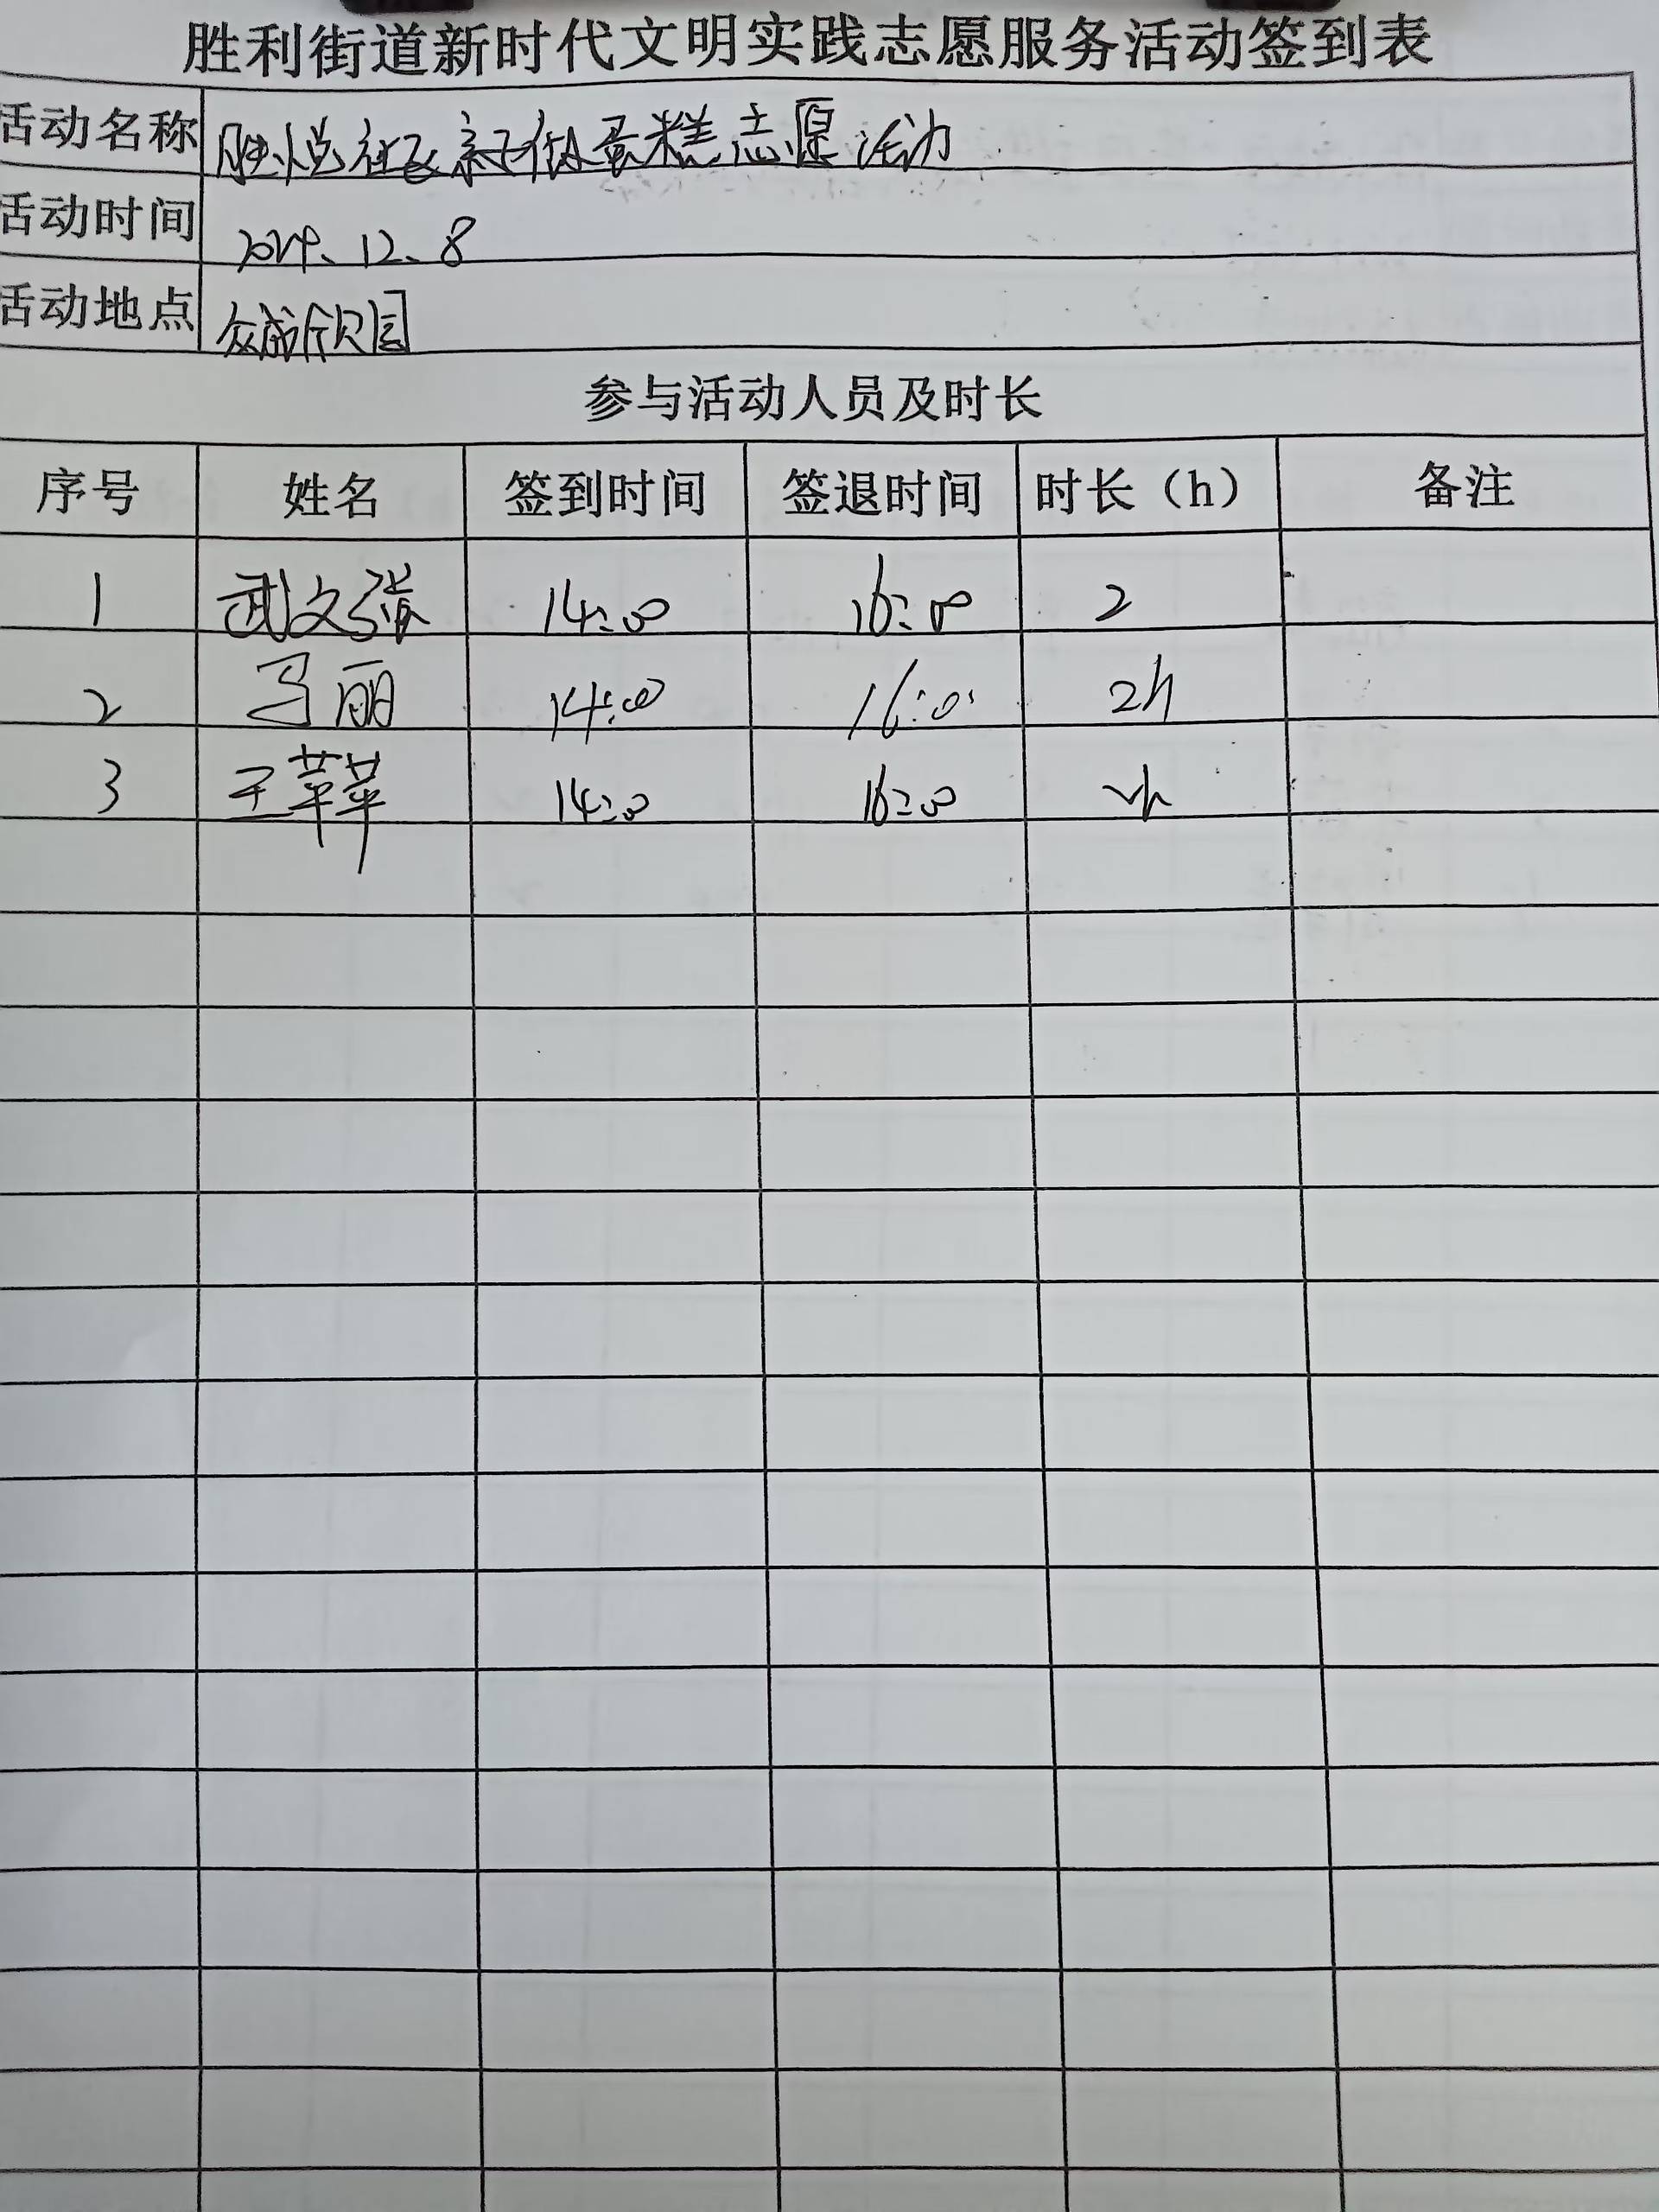 胜利街道新时代文明实践志愿服务活动签到表
活动名称 胜悦社区亲子做蛋糕志愿活动
活动时间 2024、12、8
活动地点 众成欣园
参与活动人员及时长
序号 姓名 签到时间 签退时间 时长（h） 备注
1 武文 14:00 16:00 2
2 马丽 14:00 16:00 2h
3 王苹苹 14:00 16:00 2h